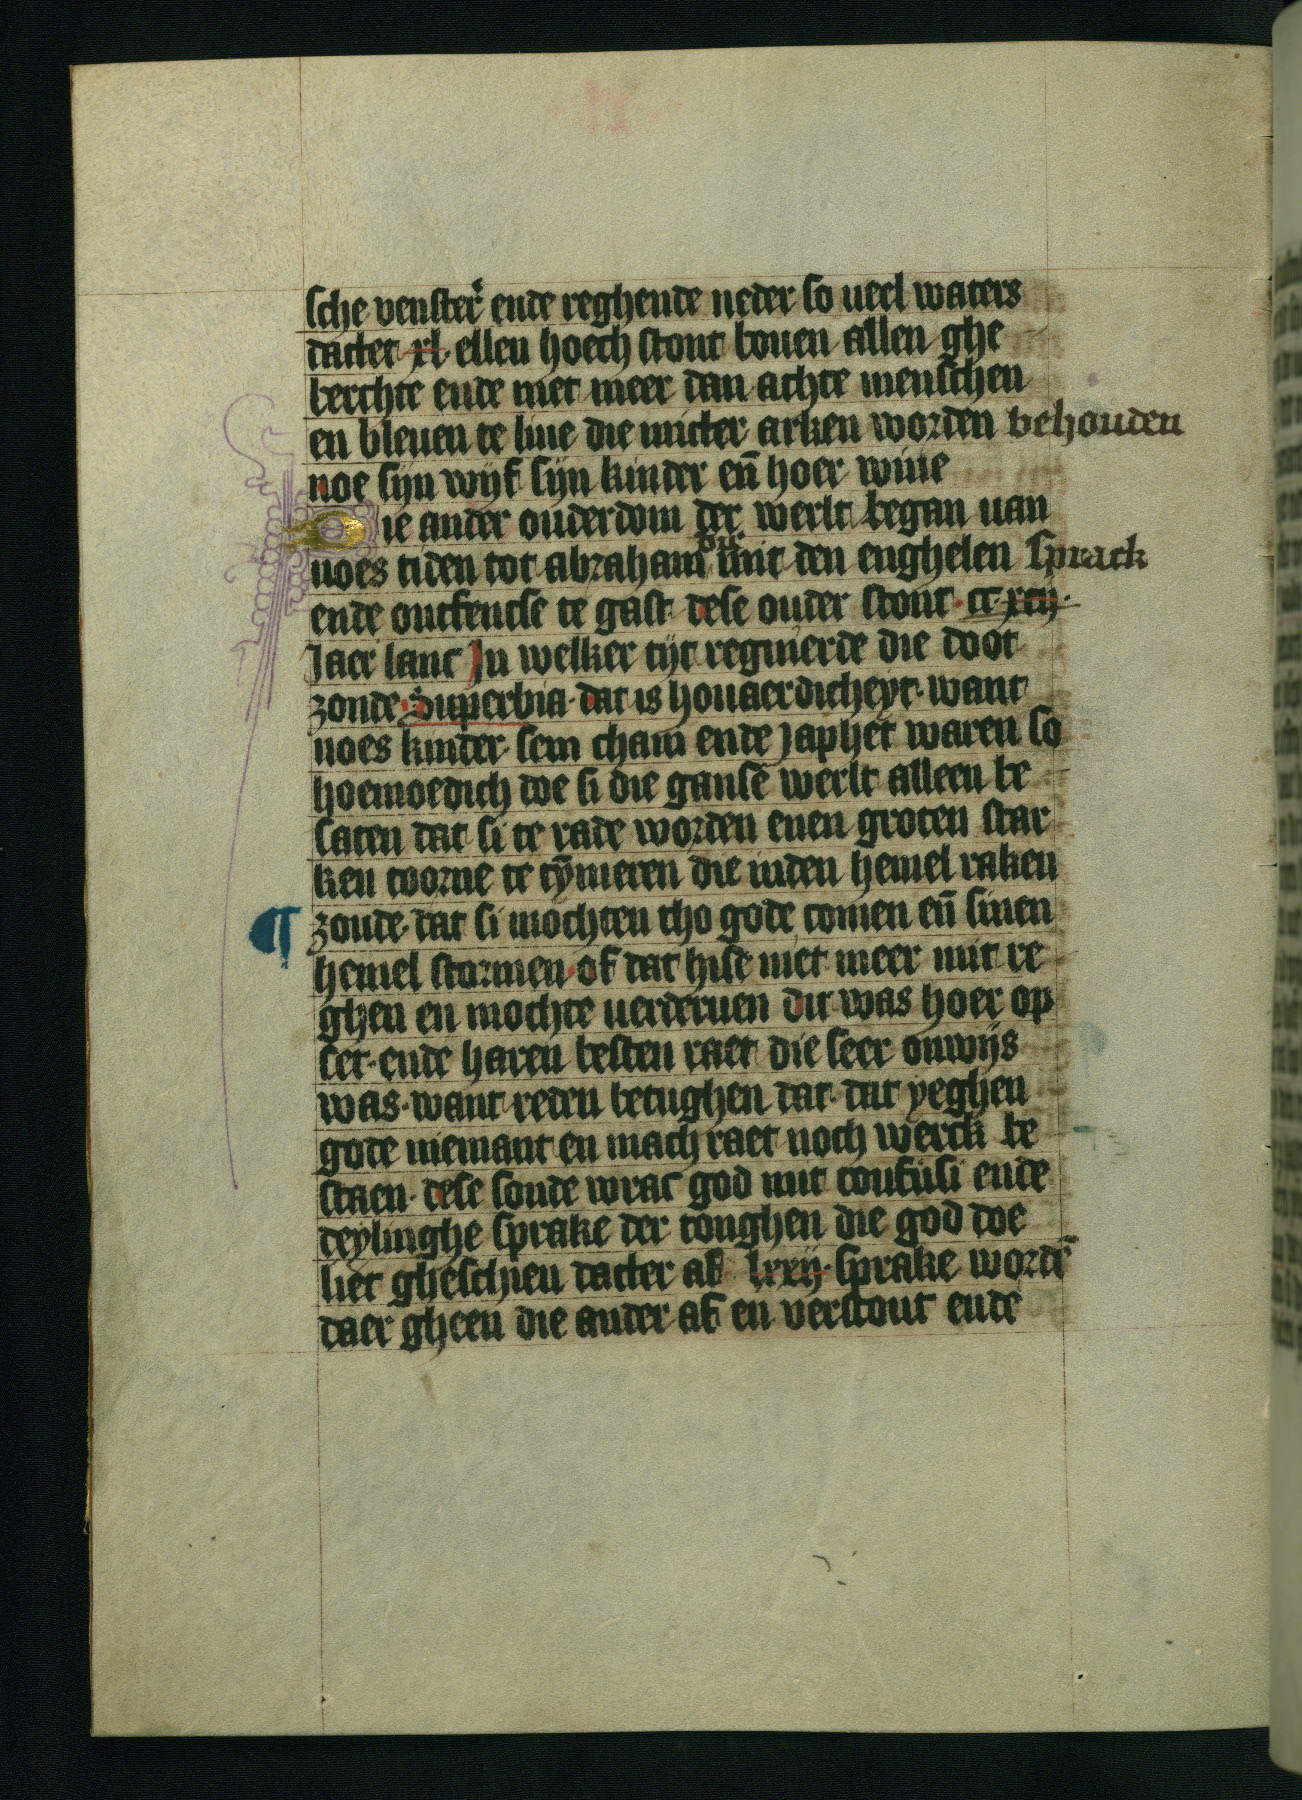 sche venster̄ ende reghende neder so ueel waters
datter xl· ellen hoech stont bouen allen ghe
berchte ende niet meer dan achte menschen
en bleuen te liue die mitter arken worden behouden
noe sijn wijf sijn kinder en̄ hoer wiue
Die ander ouderdom der werlt began uan
noes tiden tot abraham mit den enghelen sprack
ende ontfencse te gast· dese ouder stont· cc·xcij·
Jaer lanc Jn welker tijt regnierde die doot
zonde· Superbia· dat is houaerdicheyt· want
noes kinder· sem cham ende japhet waren so
hoemoedich doe si die ganse werlt alleen be
saten dat si te rade worden enen groten star
ken toorne te tȳmeren die inden hemel raken
¶ zoude· dat si mochten tho gode comen en̄ sinen
hemel stormen· of dat hise niet meer mit re
ghen en mochte uerderuen dit was hoer op
set· ende haren besten raet die seer onwijs
was· want reden betughen dat· dat yeghen
gode niemant en mach raet noch werck be
staen· dese sonde wrac god mit confusi ende
deylinghe sprake der tonghen die god doe
liet gheschien datter af lxxij· sprake wordē
daer gheen die ander af en verstont ende